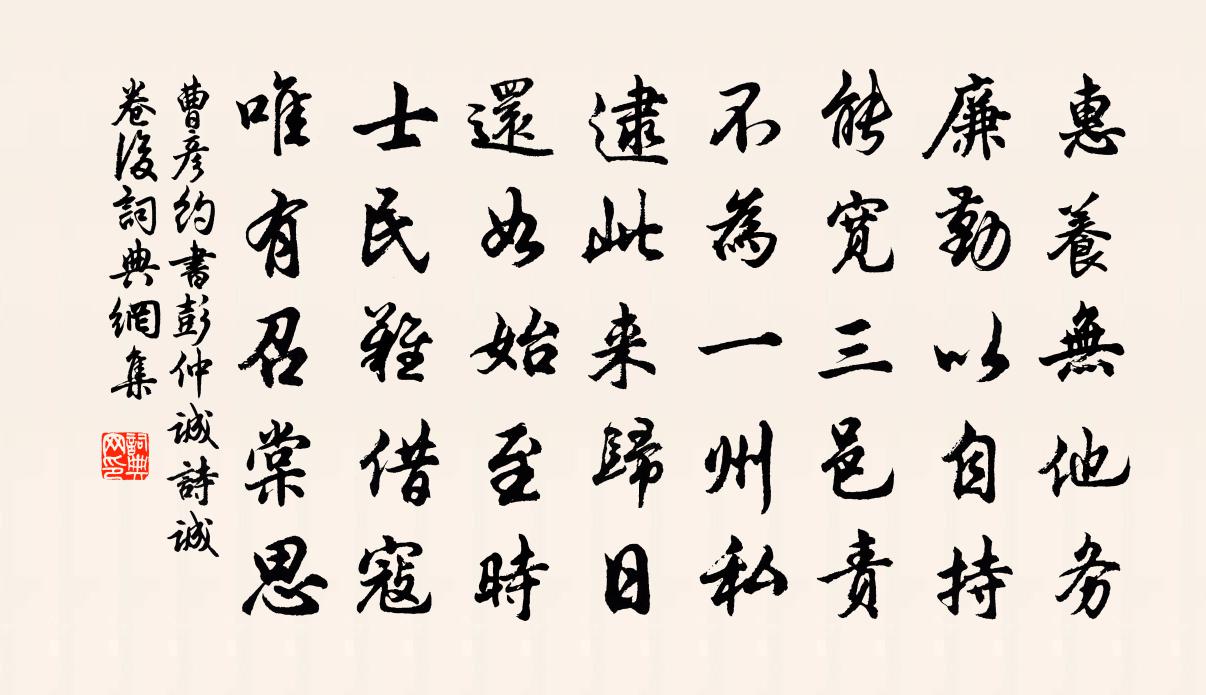 惠養無他务
廉勤以自持
能寛三邑責
不為一州私
逮此来歸日
還如始至時
士民難借寇
唯有召棠思
曹彦約書彭仲誠詩誠
卷後詞典網集
詞典网印